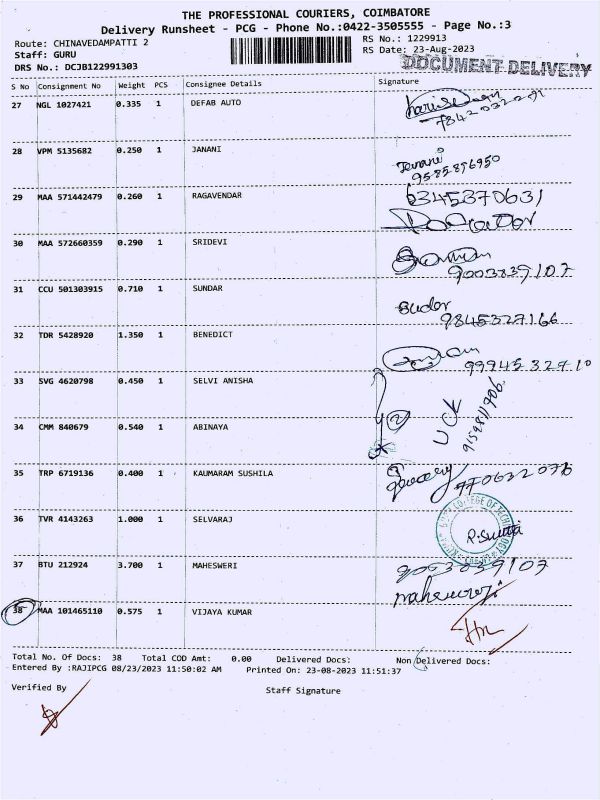 THE PROFESSIONAL COURIERS, COIMBATORE
Delivery Runsheet - PCG - Phone No.:0422-3505555 - Page No.:3
Route: CHINAVEDAMPATTI 2
RS No.: 1229913
Staff: GURU
RS Date: 23-Aug-2023
DRS No.: DCJB122991303
DOCUMENT DELIVERY
S No Consignment No Weight PCS Consignee Details Signature
27 NGL 1027421 0.335 1 DEFAB AUTO
28 VPM 5135682 0.250 1 JANANI
Janani
9585896950
29 MAA 571442479 0.260 1 RAGAVENDAR
6345370631
30 MAA 572660359 0.290 1 SRIDEVI
9003839107
31 CCU 501303915 0.710 1 SUNDAR
9845327166
32 TDR 5428920 1.350 1 BENEDICT
9994532910
33 SVG 4620798 0.450 1 SELVI ANISHA
34 CMM 840679 0.540 1 ABINAYA
35 TRP 6719136 0.400 1 KAUMARAM SUSHILA
36 TVR 4143263 1.000 1 SELVARAJ
37 BTU 212924 3.700 1 MAHESWERI
38 MAA 101465110 0.575 1 VIJAYA KUMAR
Total No. Of Docs: 38 Total COD Amt: 0.00 Delivered Docs: Non Delivered Docs:
Entered By :RAJIPCG 08/23/2023 11:50:02 AM Printed On: 23-08-2023 11:51:37
Verified By
Staff Signature